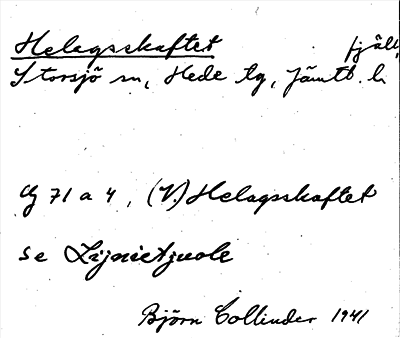 Helagsskaftet fjäll,
Storsjö sn, Hede tg, Jämtl. l.
71 a 4, (V.) Helagsskaftet
se Lijnietjuole
Björn Collinder 1941